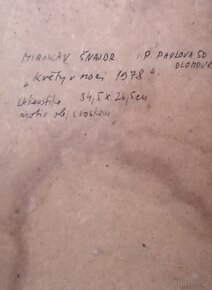 MIROSLAV ŠNAJDR I.P. PAVLOVA 50
OLOMOUC
„Květy v noci 1978“
enkaustika 34,5 x 26,5 cm
motiv olej s voskem